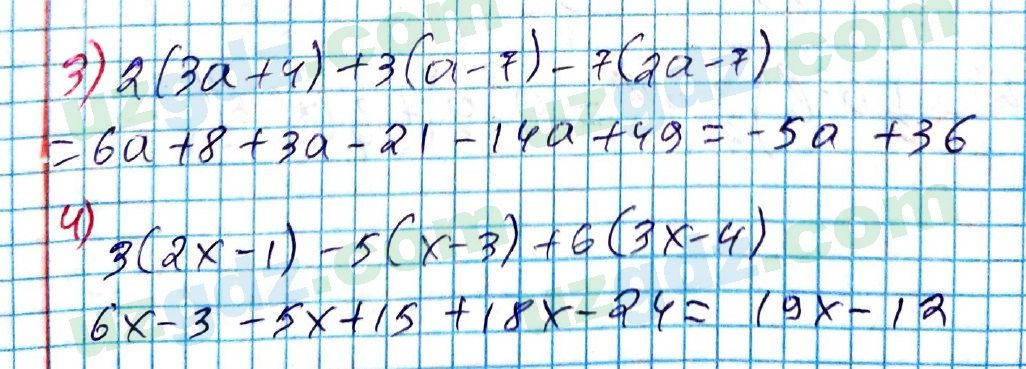 3) 2(3a+4)+3(a-7)-7(2a-7)
=6a+8+3a-21-14a+49=-5a+36
4)
3(2x-1)-5(x-3)+6(3x-4)
6x-3-5x+15+18x-24=19x-12
uzgdz.com
uzgdz.com
uzgdz.com